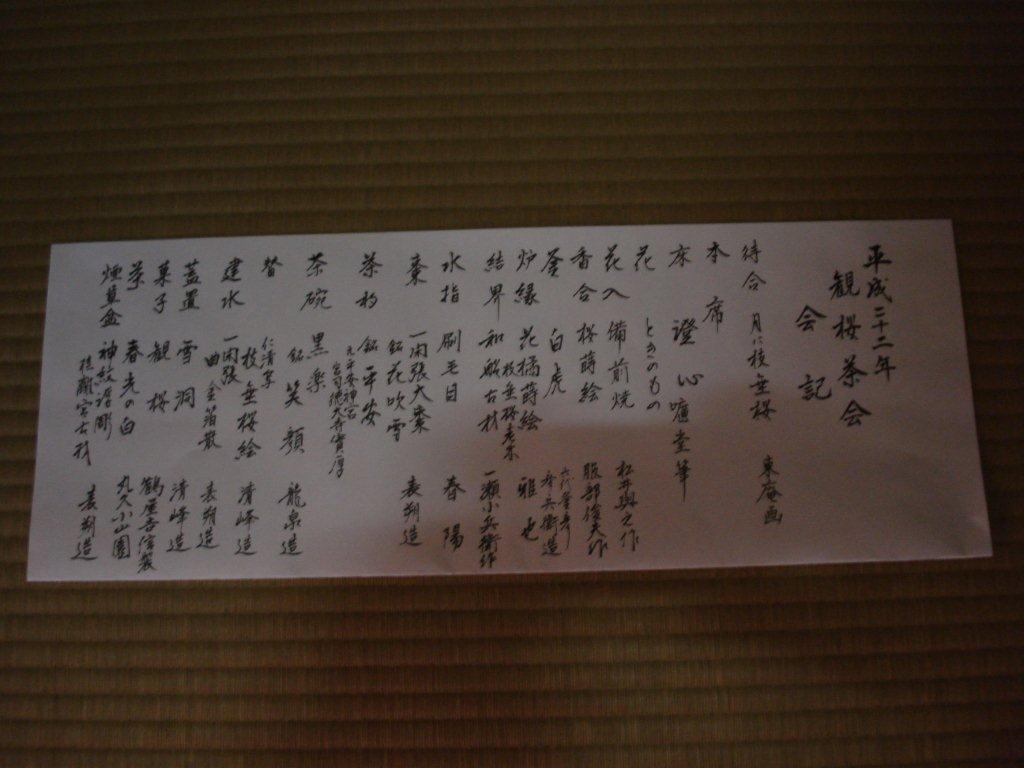 平成二十二年
観桜茶会
会記
待合 月に枝垂桜 東庵画
本席
床 澄心 堂筆
花 ときのもの
花入 備前焼 松井與之作
香合 桜蒔絵 服部俊夫作
釜 白虎 吉兵衛造
炉縁 花橘蒔絵 雅也
枝垂桜老木
結界 和船古材 一瀬小兵衛作
水指 刷毛目 春陽
棗 一閑張大棗 表朔造
銘 花吹雪
茶杓 銘 平安
元平安神宮
宮司
茶碗 黒楽 銘 笑顔 龍泉造
替 仁清写
枝垂桜絵 清峰造
建水 一閑張
曲 金箔散 表朔造
蓋置 雪洞 清峰造
菓子 観桜 鶴屋吉信製
茶 春光の白 丸久小山園
煙草盆 神紋透彫
桂離宮古材 表朔造